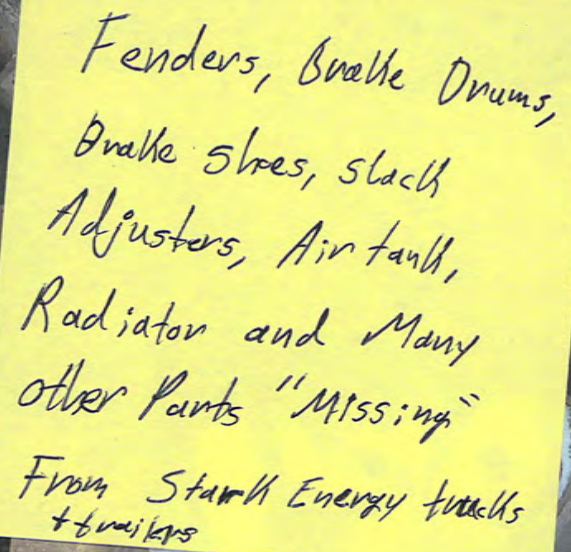 Fenders, Brake Drums,
Brake shoes, slack
Adjusters, Air tank,
Radiator and Many
other Parts "Missing"
From Stark Energy trucks
+ trailers